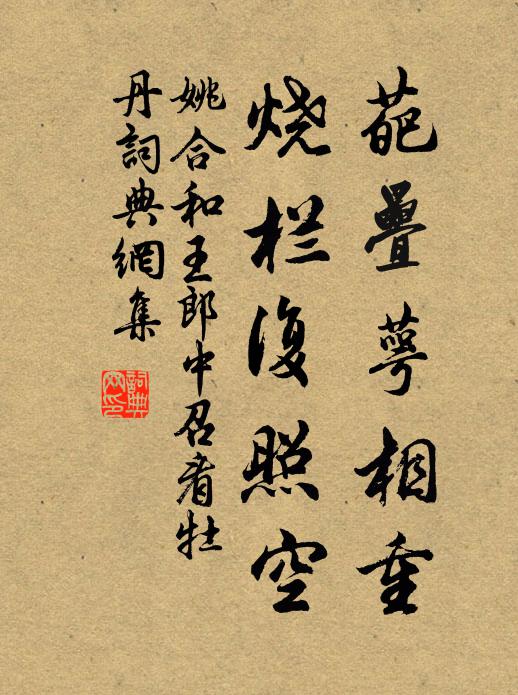 葩疊萼相重
烧栏復照空
姚合和王郎中召看牡
丹詞典網集
詞典
网印